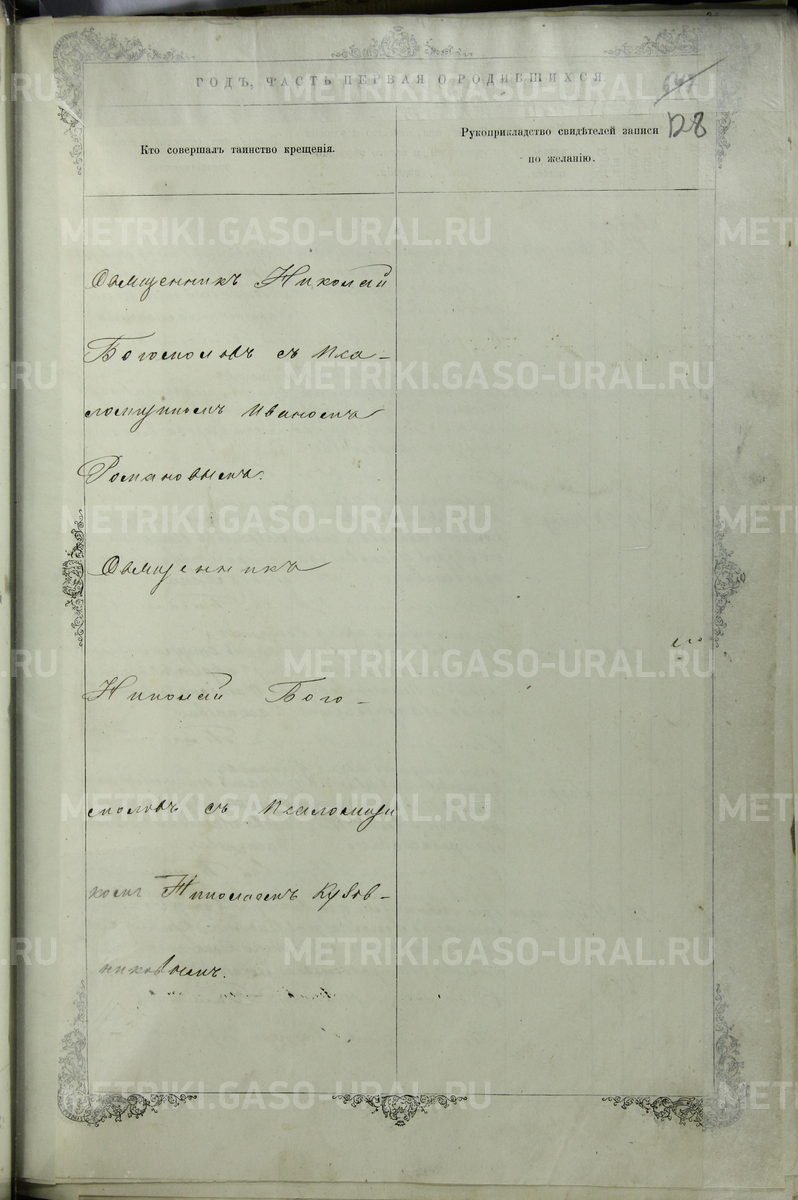 ГОДЪ, ЧАСТЬ ПЕРВАЯ О РОДИВШИХСЯ
128
Кто совершалъ таинство крещенія.
Рукоприкладство свидѣтелей записи
по желанію.
Священникъ Николай
Богомоловъ съ Пса-
ломщикомъ Иваномъ
Романовымъ.
Священникъ
Николай Бого-
моловъ съ Псаломщи
комъ Николаемъ
никовымъ.
METRIKI.GASO-URAL.RU